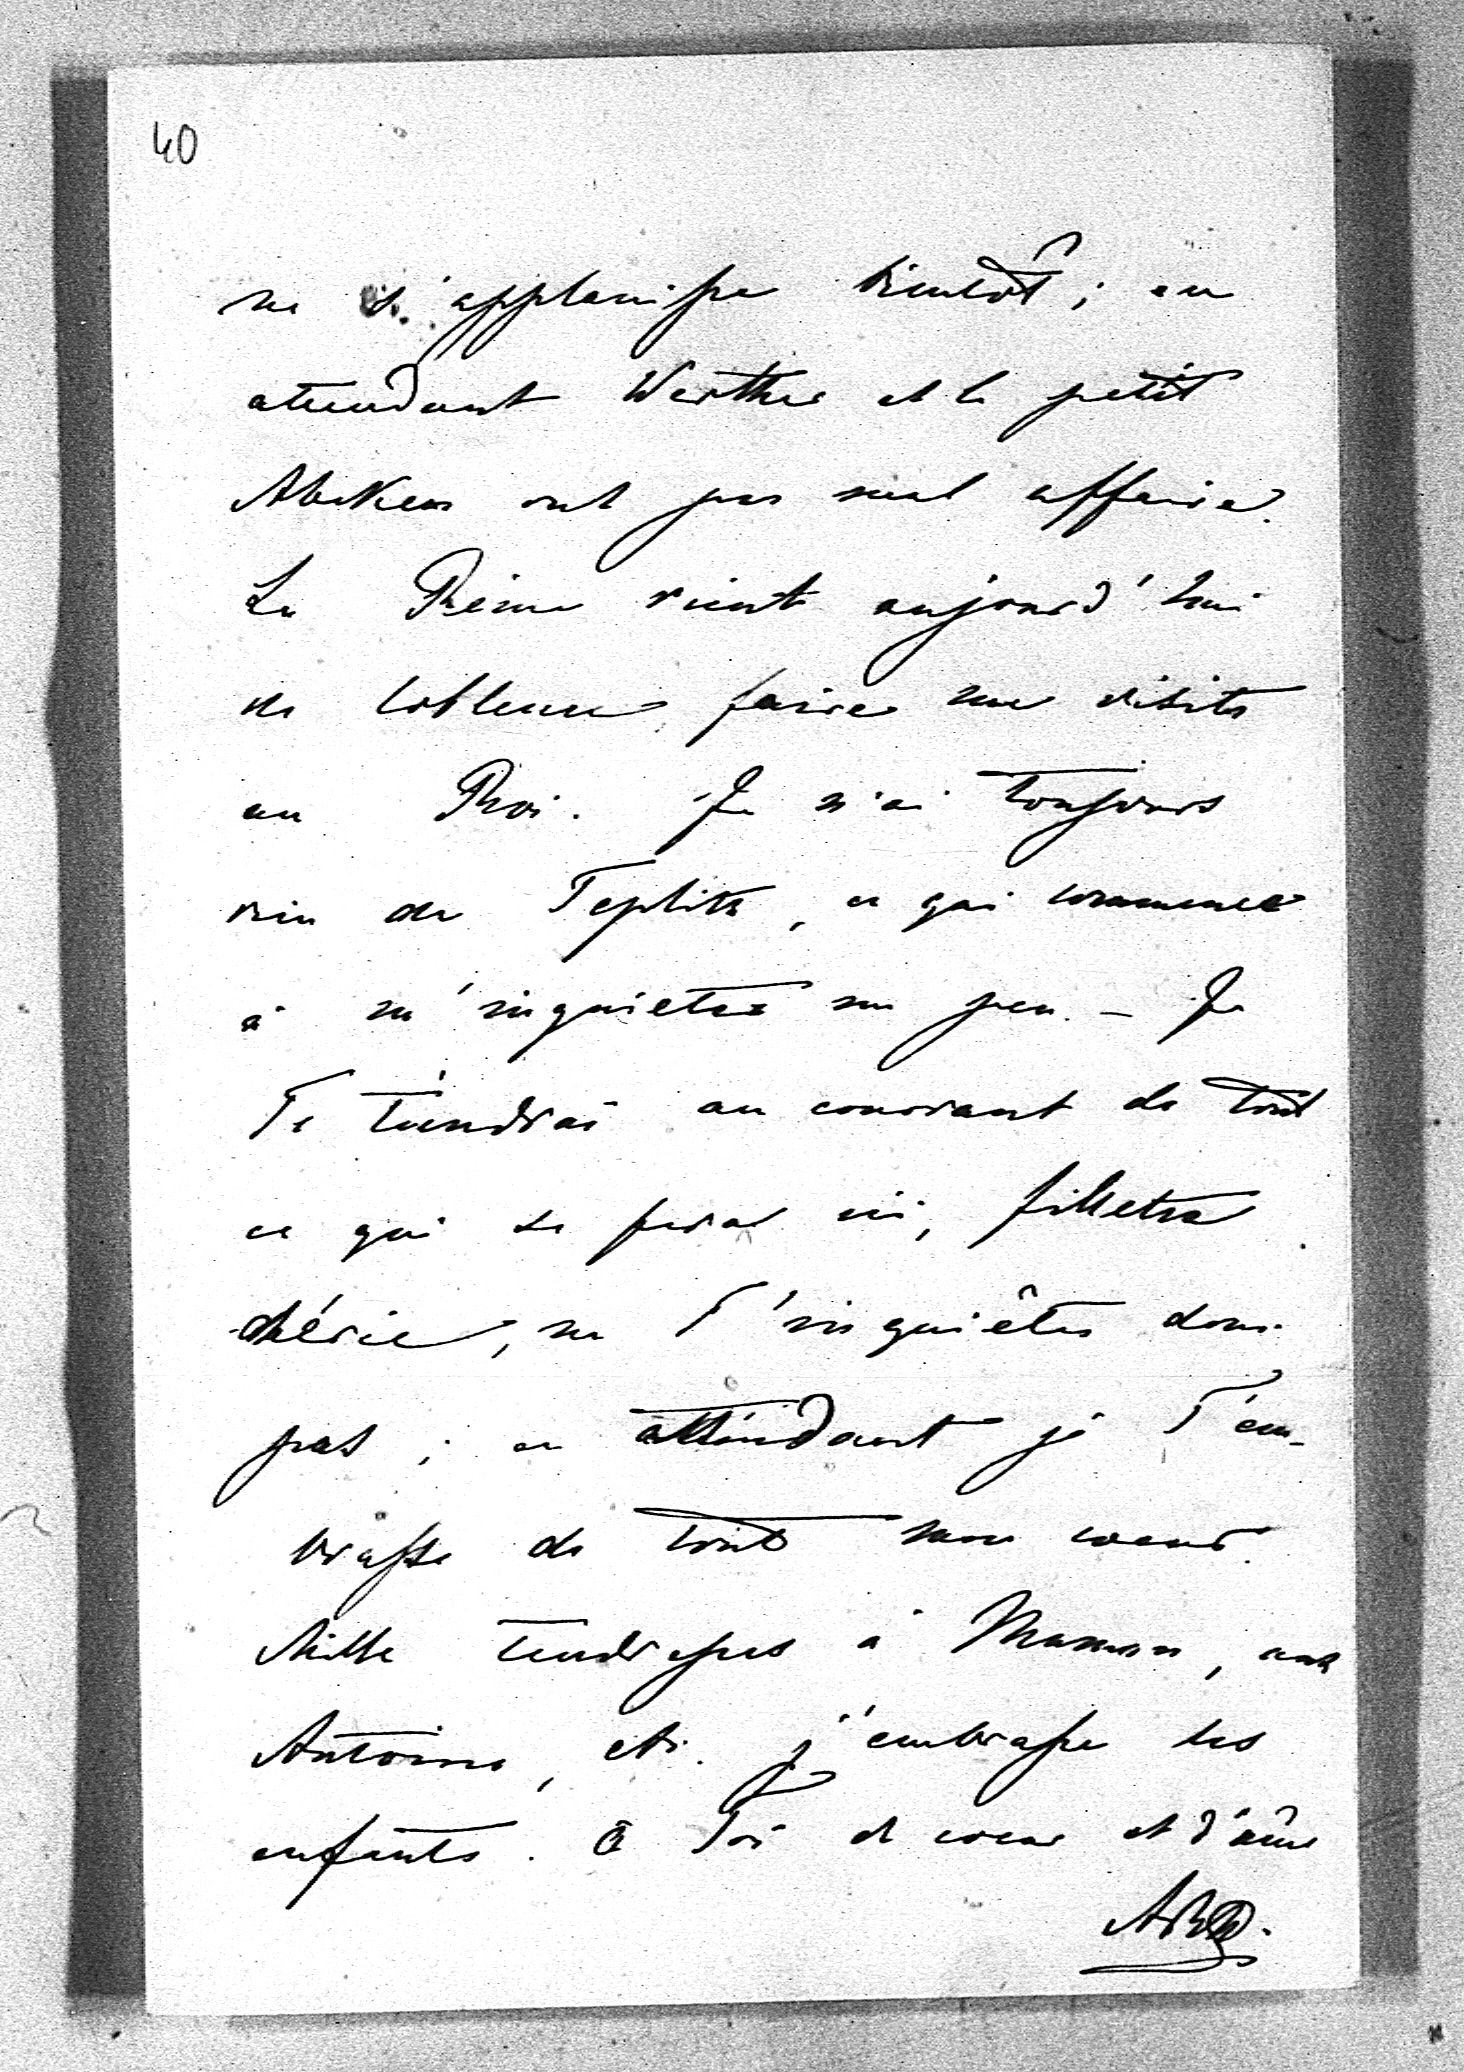 40
ne s'applanisse bientôt ; en
attendant Werther et le petit
Abeken ont pas mal affaire.
La Reine vient aujourd'hui
de Coblence faire une visite
au Roi. Je n'ai toujours
rien de Teplitz, ce qui commence
à m'inquieter un peu. – Je
Te tiendrai au courant de tout
ce qui se fera ici, fillette
chérie, ne T'inquiètes donc
pas ; en attendant je T'em-
brasse de tout mon coeur.
Mille tendresses à Maman, aux
Antoine, etc. j'embrasse les
enfants. à Toi de coeur et d'âme